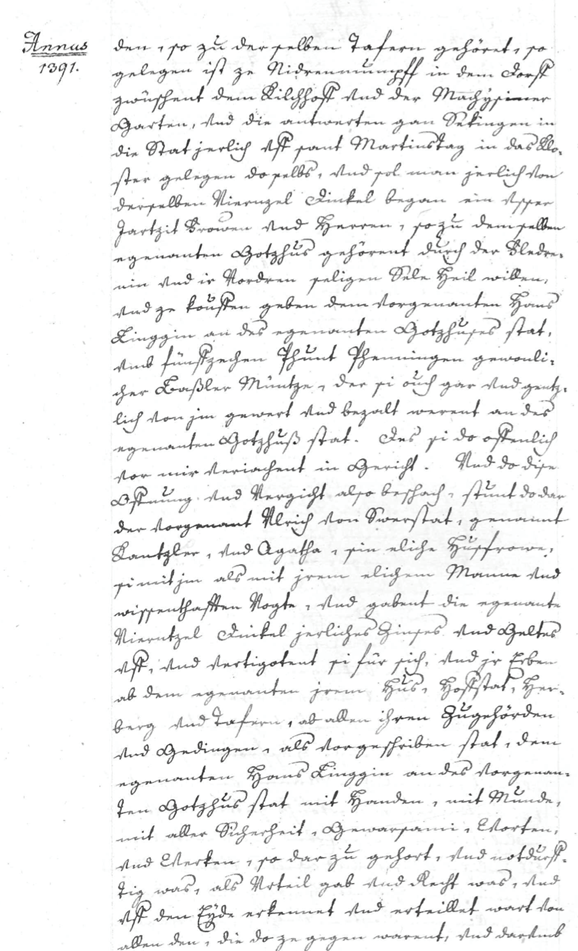 Annus
1391.
den, so zu der selben Tafern gehöret, so
gelegen ist ze Nidrenmumpff in dem Dorff
zwüschent dem Kilchhoff vnd der
Garten, vnd die antwerten gan Sekingen in
die Stat jerlich vff sant Martinstag in das Klo-
ster gelegen doselbs, vnd sol man jerlich von
derselben Viernzel Dinkel began ein
Jartzit Frowen vnd Herren, so zu demselben
egenanten Gotzhus gehörent durch der
nin vnd ir Vordren seligen Sele Heil willen,
vnd ze kouffen geben dem vorgenanten Hans
Linggin an des egenanten Gotzhuses stat,
vmb fünffzechen Phunt Phenningen gewonli-
cher Baßler Müntze, der si ouch gar vnd gentz-
lich von jm gewert vnd bezalt werent an des
egenanten Gotzhuß stat. Des si do offenlich
vor mir veriachent in Gericht. Vnd do dise
Offnung vnd Vergicht also beschach, stunt do dar
der vorgenant Vlrich von Swerstat, genannt
Kantzler, vnd Agatha, sin eliche Husfrowe,
si mit jm als mit jrem elichem Manne vnd
wissenthafften Vogte, vnd gabent die egenante
Vierntzel Dinkel jerliches Zinses vnd Geltes
vff, vnd vertigotent si für sich, vnd jr Erben
ab dem egenanten jrem Hus, Hoffstat, Her-
berg vnd Tafern, ab allen ihren Zugehörden
vnd Gedingen, als vorgeschriben stat, dem
egenanten Hans Linggin an des vorgenan-
ten Gotzhus stat mit Handen, mit Munde,
mit aller Sicherheit, Gewarsami, Worten,
vnd Werken, so darzu gehort, vnd notdurff-
tig was, als Vrteil gab vnd Recht was, vnd
vff den Eyde erkennet vnd erteillet wart von
allen den, die do ze gegen warent, vnd darumb